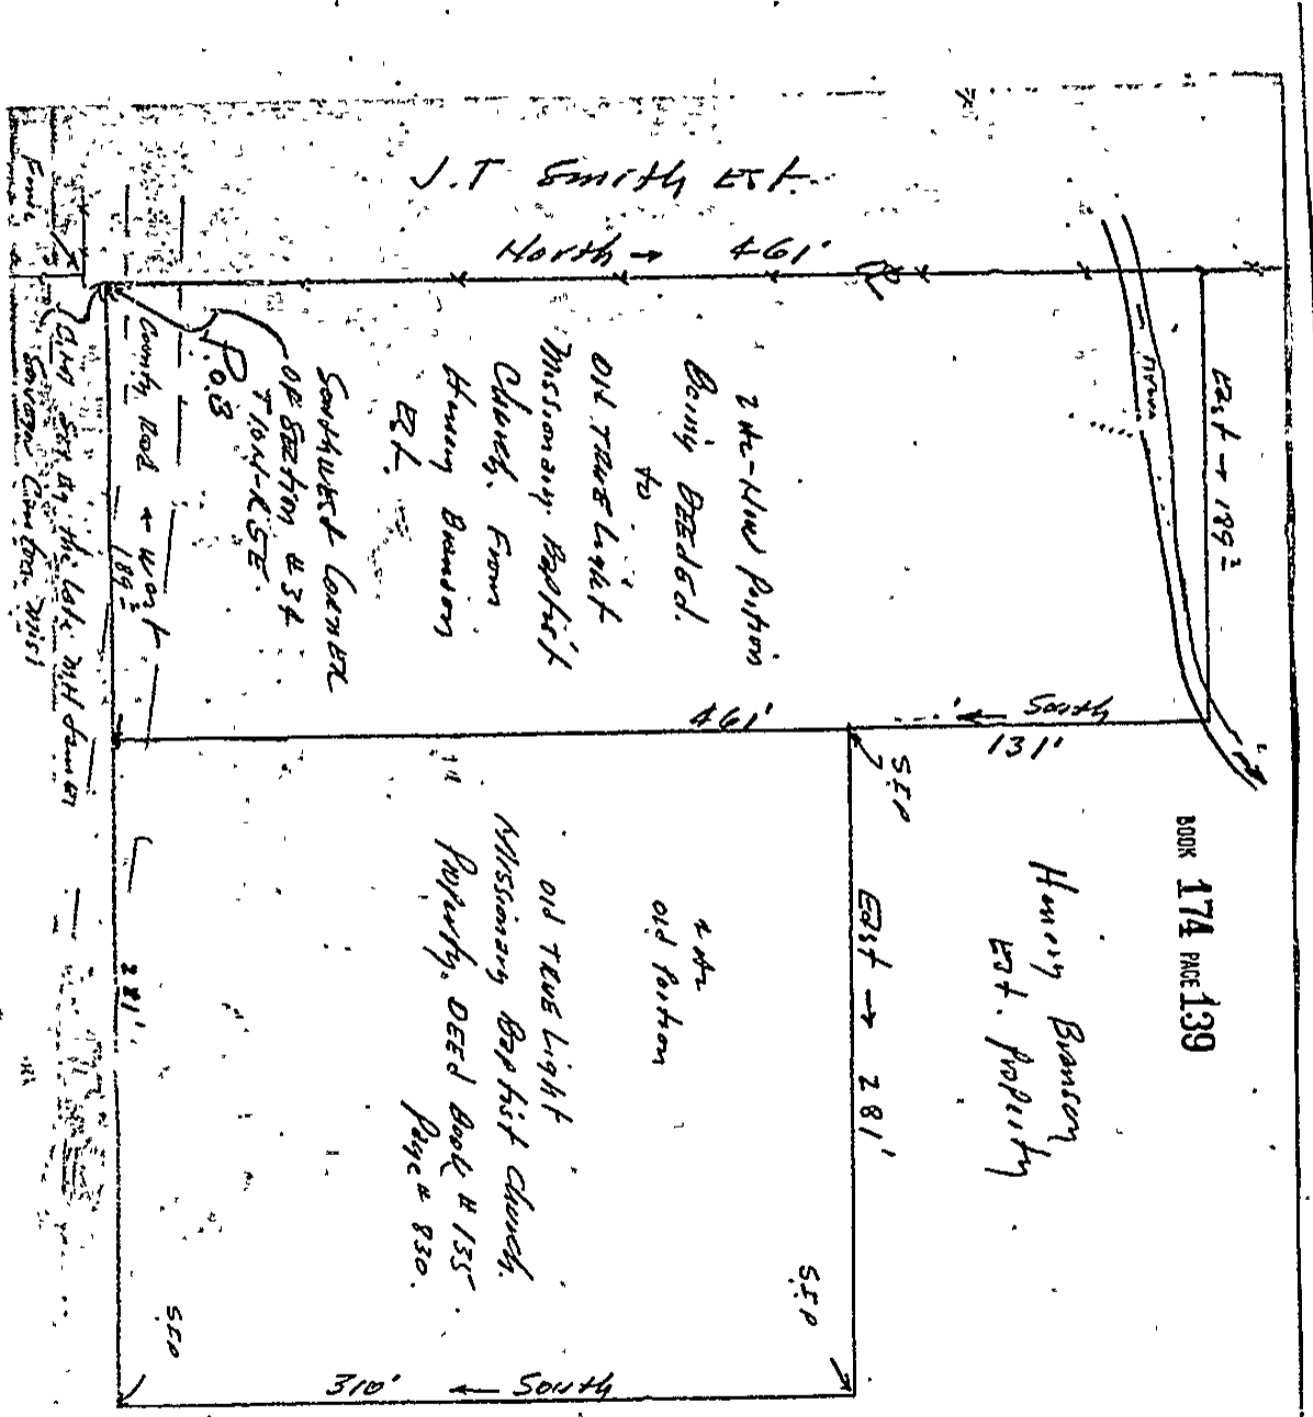 J.T Smith Est.
North → 461'
East → 189²
2 Ac-New Portion
Being DEEded.
to
Old TRUE Light
Missionary Baptist
Church. From
Henery Branson
Est.
Southwest Corner
OF Section # 34
T10N-R5E.
P.O.B
County Road ← West
189²
Set By the Late MH
South
461'
131'
SIP
East → 281'
BOOK 174 PAGE 139
Henery Branson
Est. Property
2 Ac
Old Portion
Old TRUE Light
Missionary Baptist Church.
Property. DEEd Book # 135
Page # 830.
281'
SIP
SIP
310' ← South